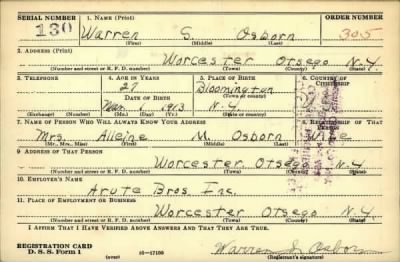 SERIAL NUMBER 1. NAME (Print) ORDER NUMBER
130 Warren S. Osborn 305
(First) (Middle) (Last)
2. ADDRESS (Print)
Worcester Otsego N.Y.
(Number and street or R. F. D. number) (Town) (County) (State)
3. TELEPHONE 4. AGE IN YEARS 5. PLACE OF BIRTH 6. COUNTRY OF CITIZENSHIP
27 Bloomington
DATE OF BIRTH (Town or county)
Mar. 1 1913 N.Y.
(Exchange) (Number) (Mo.) (Day) (Yr.) (State or country)
7. NAME OF PERSON WHO WILL ALWAYS KNOW YOUR ADDRESS 8. RELATIONSHIP OF THAT PERSON
Mrs. Alleine M. Osborn Wife
(Mr., Mrs., Miss) (First) (Middle) (Last)
9. ADDRESS OF THAT PERSON
Worcester Otsego N.Y.
(Number and street or R. F. D. number) (Town) (County) (State)
10. EMPLOYER'S NAME
Arute Bros Inc.
11. PLACE OF EMPLOYMENT OR BUSINESS
Worcester Otsego N.Y.
(Number and street or R. F. D. number) (Town) (County) (State)
I AFFIRM THAT I HAVE VERIFIED ABOVE ANSWERS AND THAT THEY ARE TRUE.
REGISTRATION CARD
D. S. S. Form 1 (over) 16-17105 Warren S Osborn
(Registrant's signature)